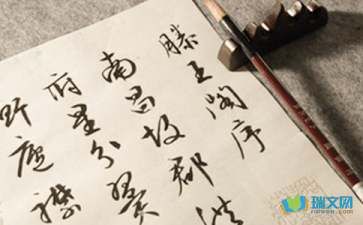 滕王阁序
南昌故郡洪
府星分翼
庐襟
瑞文网